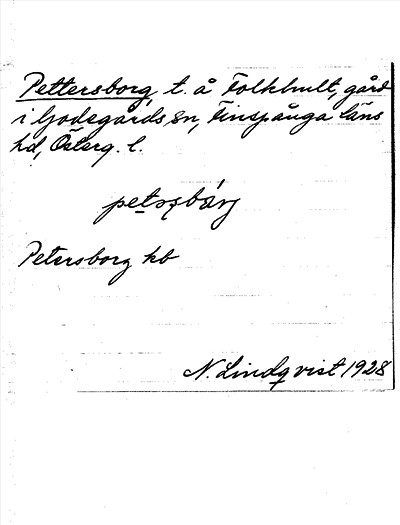 Pettersborg, t. å Folkhult, gård
i Godegårds sn, Finspånga läns
hd, Österg. l.
Petersborg kb
N. Lindqvist 1928